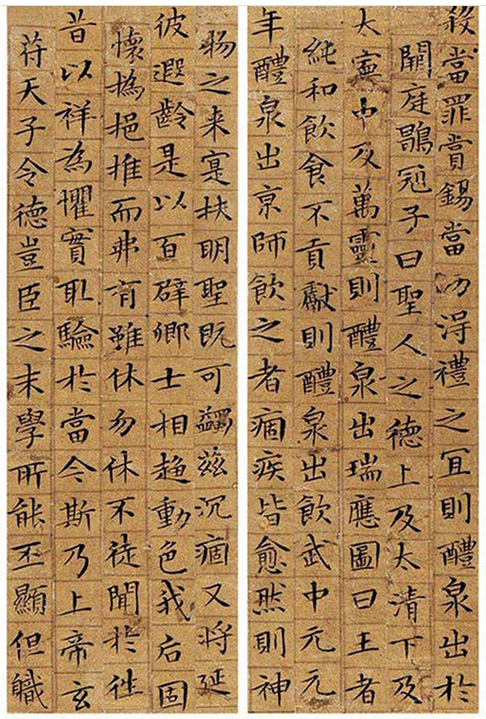 殺當罪賞錫當功得禮之宜則醴泉出於
闕庭鶡冠子曰聖人之德上及太清下及
太寧中及萬靈則醴泉出瑞應圖曰王者
純和飲食不貢獻則醴泉出飲武中元元
年醴泉出京師飲之者痼疾皆愈然則神
物之来寔扶明聖既可蠲茲沉痼又將延
彼遐齡是以百辟卿士相趍動色我后固
懷撝挹推而弗有雖休勿休不徒聞於往
昔以祥為懼實取驗於當今斯乃上帝玄
苻天子令德豈臣之末學所能丕顯但職